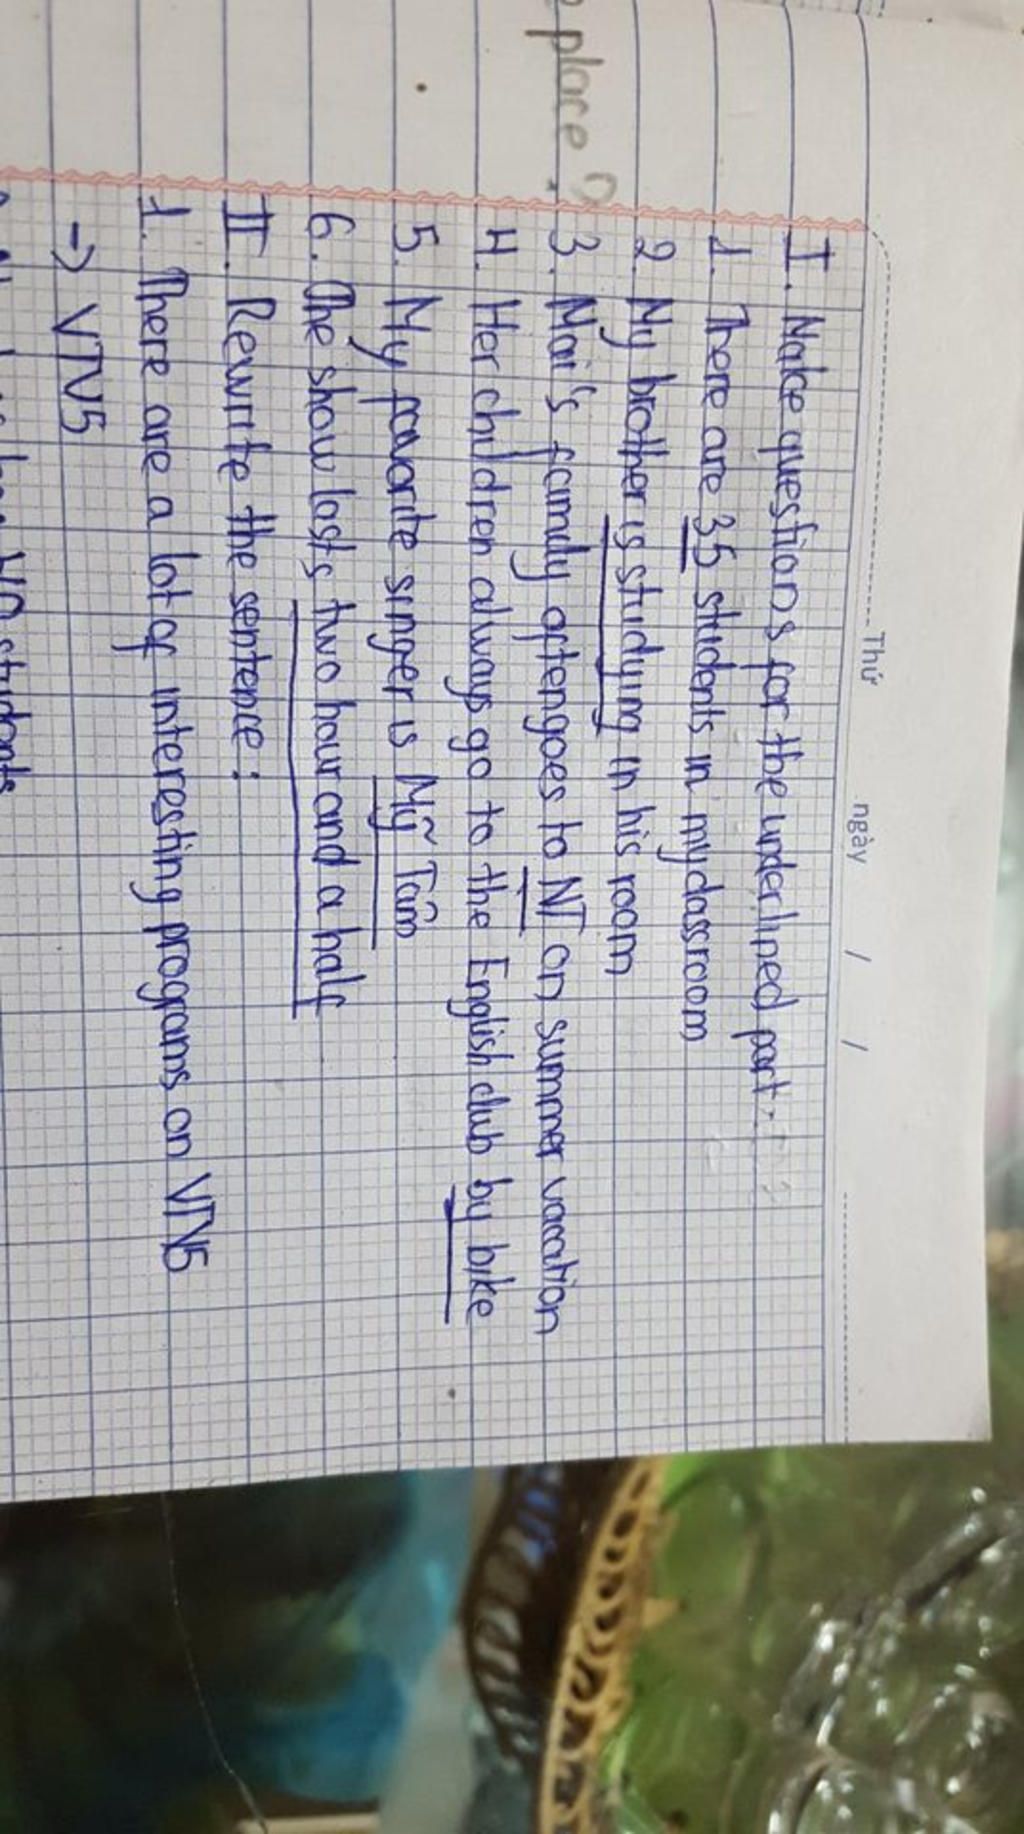 Thứ ngày / /
place?
I. Make questions for the underlined part.
1. There are 35 students in my classroom
2. My brother is studying in his room
3. Mai's family often goes to NT on summer vacation
4. Her children always go to the English club by bike
5. My favorite singer is Mỹ Tâm
6. The show lasts two hour and a half
II. Rewrite the sentence:
1. There are a lot of interesting programs on VTV5
→ VTV5
students